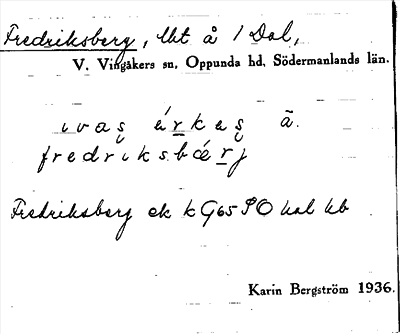 Fredriksberg, lht å 1 Dal,
V. Vingåkers sn, Oppunda hd, Södermanlands län.
ɩvas̬ árkas̬ ā.
fredrɩksbǽrj
Fredriksberg ek k G65 SO kal kb
Karin Bergström 1936.